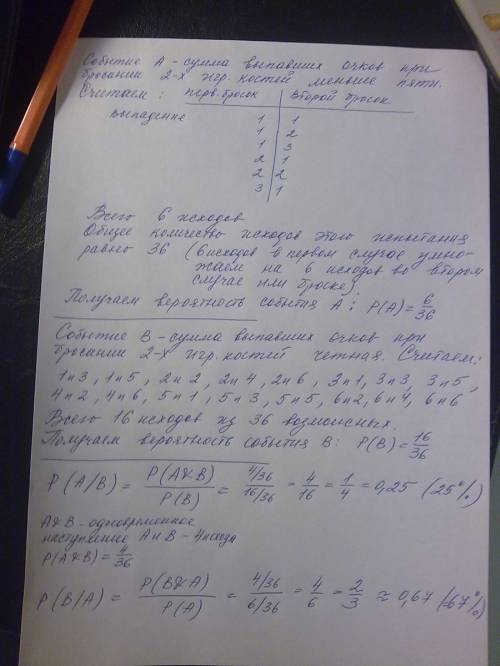 Событие А - сумма выпавших очков при
бросании 2-х игр. костей меньше пяти.
Считаем: перв. бросок | второй бросок
Выпадение 1 | 1
1 | 2
1 | 3
2 | 1
2 | 2
3 | 1
Всего 6 исходов
Общее количество исходов этого испытания
равно 36 (6 исходов в первом случае умно-
жаем на 6 исходов во втором
случае или броске)
Получаем вероятность события А: P(A) = 6/36
Событие В - сумма выпавших очков при
бросании 2-х игр. костей четная. Считаем:
1 и 3, 1 и 5, 2 и 2, 2 и 4, 2 и 6, 3 и 1, 3 и 3, 3 и 5,
4 и 2, 4 и 6, 5 и 1, 5 и 3, 5 и 5, 6 и 2, 6 и 4, 6 и 6
Всего 16 исходов из 36 возможных.
Получаем вероятность события В: P(B) = 16/36
P(A/B) = P(A&B)/P(B) = (4/36)/(16/36) = 4/16 = 1/4 = 0,25 (25%)
A&B - одновременное
наступление А и В - 4 исхода
P(A&B) = 4/36
P(B/A) = P(B&A)/P(A) = (4/36)/(6/36) = 4/6 = 2/3 ≈ 0,67 (67%)